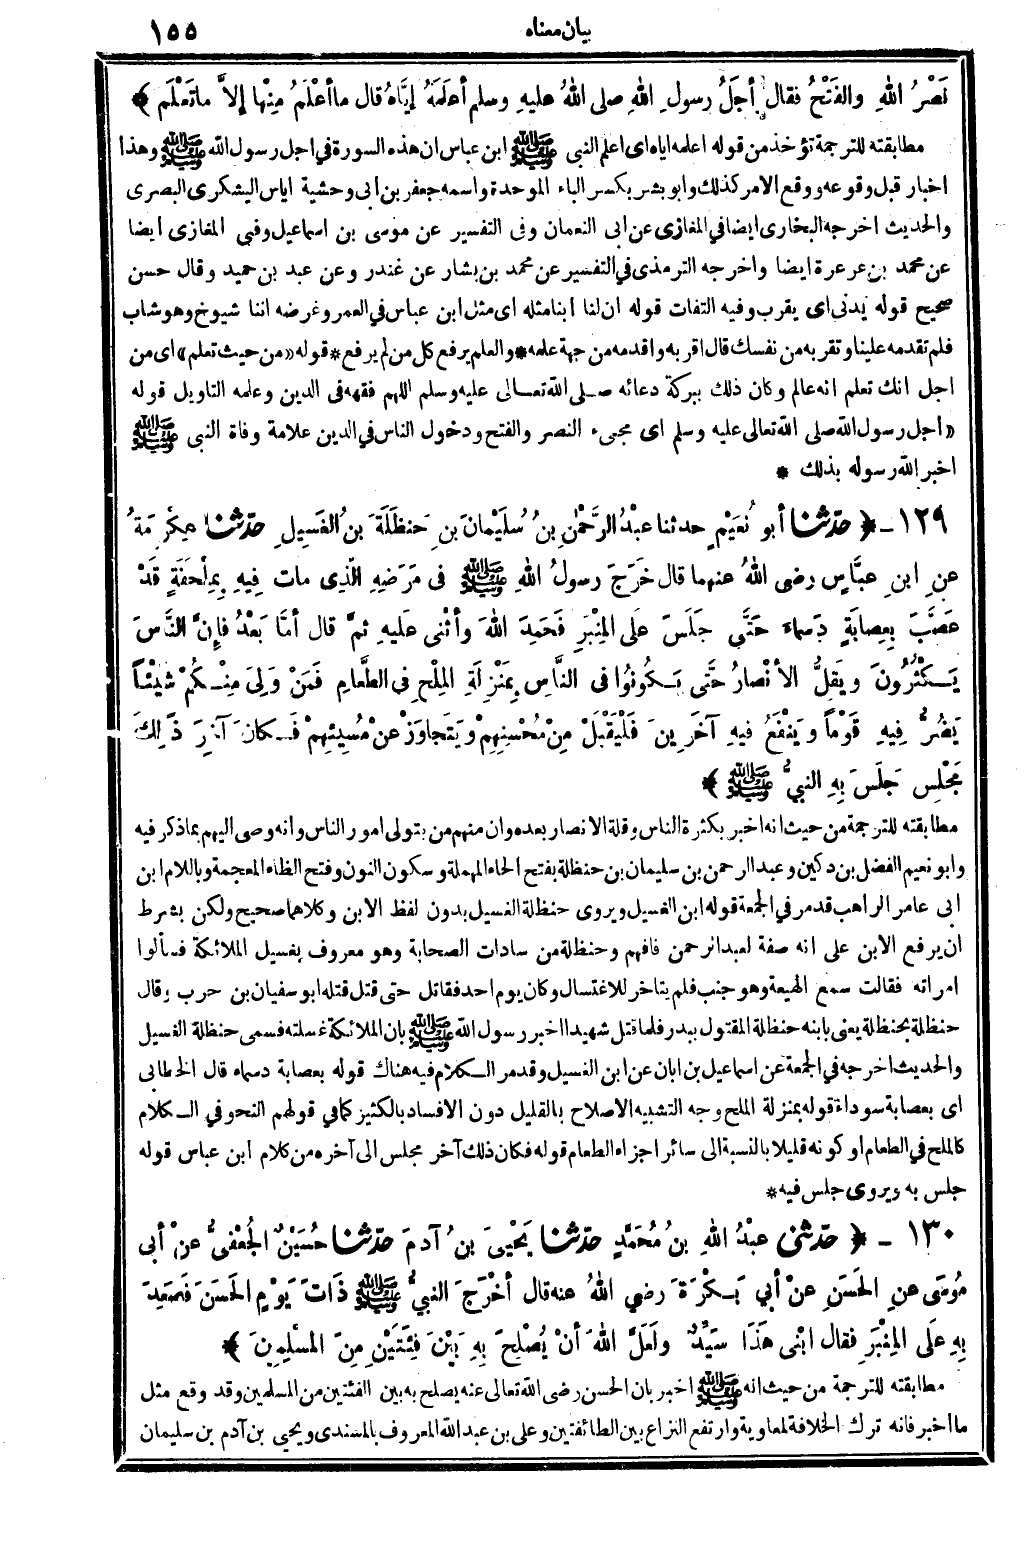 بيان معناه ١٥٥
نَصْرُ اللهِ والفَتْحُ فقال أجَلُ رسولِ اللهِ صلى اللهُ عليهِ وسلم أعلَمَهُ إيَّاهُ قال ما أعْلَمُ مِنْها إلاَّ ما تَعْلَم ﴾
مطابقته للترجمة تؤخذ من قوله اعلمه اياه اى اعلم النبى ﷺ ابن عباس ان هذه السورة في اجل رسول الله ﷺ وهذا
اخبار قبل وقوعه ووقع الامر كذلك وابو بشر بكسر الباء الموحدة واسمه جعفر بن ابى وحشية اياس اليشكرى البصرى
والحديث اخرجه البخارى ايضا في المغازى عن ابى النعمان وفى التفسير عن موسى بن اسماعيل وفى المغازى ايضا
عن محمد بن عرعرة ايضا واخرجه الترمذى في التفسير عن محمد بن بشار عن غندر وعن عبد بن حميد وقال حسن
صحيح قوله يدنى اى يقرب وفيه التفات قوله ان لنا ابنا مثله اى مثل ابن عباس في العمر وغرضه اننا شيوخ وهو شاب
فلم تقدمه علينا وتقربه من نفسك قال اقربه واقدمه من جهة علمه * والعلم يرفع كل من لم يرفع * قوله «من حيث تعلم» اى من
اجل انك تعلم انه عالم وكان ذلك ببركة دعائه صلى الله تعالى عليه وسلم اللهم فقهه فى الدين وعلمه التاويل قوله
«اجل رسول الله صلى الله تعالى عليه وسلم اى مجىء النصر والفتح ودخول الناس في الدين علامة وفاة النبى ﷺ
اخبر الله رسوله بذلك *
١٢٩ - ﴿ حدّثنا أبو نُعَيْمٍ حدثنا عبْدُ الرَّحْمٰنِ بنُ سُلَيْمانَ بنِ حَنظَلَةَ بنُ الغَسِيلِ حدّثنا عِكْرِمَةُ
عنِ ابنِ عبَّاسٍ رضى اللهُ عنهما قال خَرَجَ رسولُ اللهِ ﷺ فى مَرَضِهِ الَّذِى مات فِيهِ بِمِلْحَفَةٍ قَدْ
عَصَّبَ بِعِصابَةٍ دَسماءَ حَتَّى جَلَسَ عَلَى المِنْبَرِ فَحَمِدَ اللهَ وأثْنى عليهِ ثمَّ قال أمَّا بَعْدُ فإنَّ النَّاسَ
يَكْثُرُونَ ويَقِلُّ الأنْصارُ حتَّى يَكُونُوا فى النَّاسِ بِمَنْزِلَةِ المِلْحِ فى الطَّعامِ فَمَنْ ولِىَ مِنْكُمْ شَيْئاً
يَضُرُّ فِيهِ قَوْماً ويَنْفَعُ فِيهِ آخَرِينَ فَلْيَقْبَلْ مِنْ مُحْسِنِهِمْ ويَتَجاوَزْ عنْ مُسِيئِهِمْ فَكانَ آخِرَ ذَلِكَ
مَجْلِسٍ جَلَسَ بِهِ النبىُّ ﷺ ﴾
مطابقته للترجمة من حيث انه اخبر بكثرة الناس وقلة الانصار بعده وان منهم من يتولى امور الناس وانه وصى اليهم بما ذكر فيه
وابو نعيم الفضل بن دكين وعبد الرحمن بن سليمان بن حنظلة بفتح الحاء المهملة وسكون النون وفتح الظاء المعجمة وباللام ابن
ابى عامر الراهب قد مر في الجمعة قوله ابن الغسيل ويروى حنظلة الغسيل بدون لفظ الابن وكلاهما صحيح ولكن بشرط
ان يرفع الابن على انه صفة لعبد الرحمن فافهم وحنظلة من سادات الصحابة وهو معروف بغسيل الملائكة فسألوا
امراته فقالت سمع الهيعة وهو جنب فلم يتاخر للاغتسال وكان يوم احد فقاتل حتى قتل قتله ابو سفيان بن حرب وقال
حنظلة بحنظلة يعنى بابنه حنظلة المقتول ببدر فلما قتل شهيدا اخبر رسول الله ﷺ بان الملائكة غسلته فسمى حنظلة الغسيل
والحديث اخرجه في الجمعة عن اسماعيل بن ابان عن ابن الغسيل وقد مر الكلام فيه هناك قوله بعصابة دسماء قال الخطابى
اى بعصابة سوداء قوله بمنزلة الملح وجه التشبيه الاصلاح بالقليل دون الافساد بالكثير كما في قولهم النحو في الكلام
كالملح في الطعام او كونه قليلا بالنسبة الى سائر اجزاء الطعام قوله فكان ذلك آخر مجلس الى آخره من كلام ابن عباس قوله
جلس به ويروى جلس فيه *
١٣٠ - ﴿ حدّثنى عبْدُ اللهِ بنُ مُحَمَّدٍ حدّثنا يَحْيىَ بنُ آدمَ حدّثنا حُسَيْنٌ الجُعْفىُّ عنْ أبى
مُوسَى عنِ الحَسَنِ عنْ أبي بَكْرَةَ رضي اللهُ عنه قال أخْرَجَ النبىُّ ﷺ ذَاتَ يَوْمٍ الحَسَنَ فَصَعِدَ
بِهِ عَلَى المِنْبَرِ فقال ابْنى هَذَا سَيِّدٌ ولَعَلَّ اللهَ أنْ يُصْلِحَ بِهِ بَيْنَ فِئَتَيْنِ مِنَ المُسْلِمِينَ ﴾
مطابقته للترجمة من حيث انه ﷺ اخبر بان الحسن رضى الله تعالى عنه يصلح به بين الفئتين من المسلمين وقد وقع مثل
ما اخبر فانه ترك الخلافة لمعاوية وارتفع النزاع بين الطائفتين وعلى بن عبد الله المعروف بالمسندى ويحيى بن آدم بن سليمان